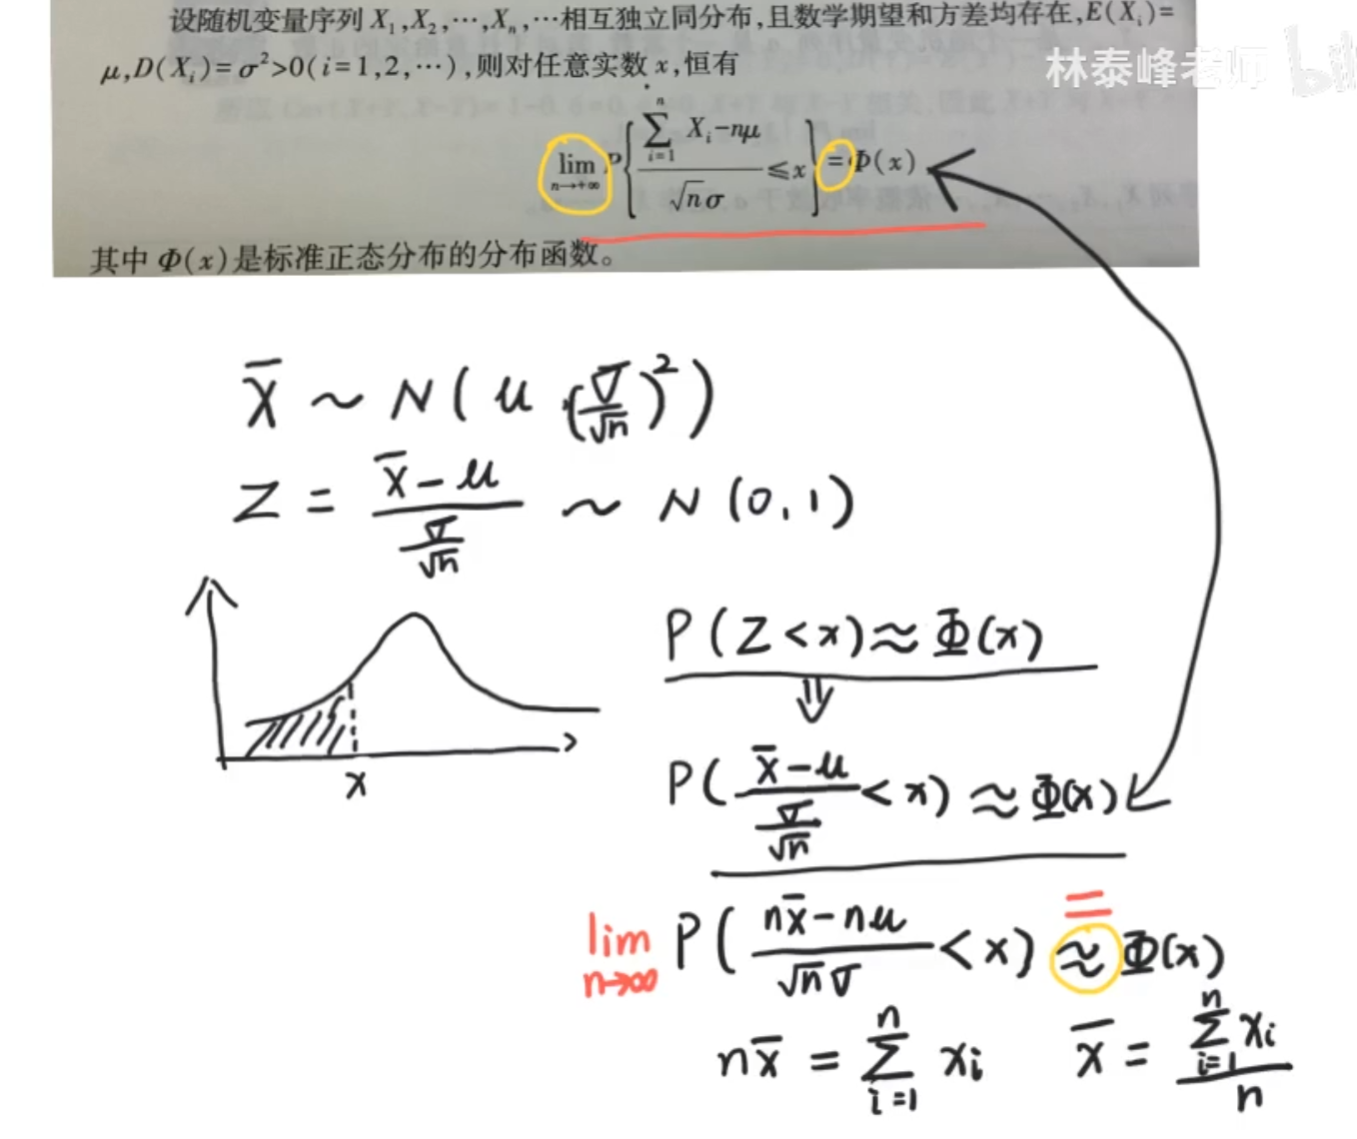 设随机变量序列 X₁,X₂,⋯,Xₙ,⋯相互独立同分布,且数学期望和方差均存在,E(Xᵢ)=
μ,D(Xᵢ)=σ²>0(i=1,2,⋯),则对任意实数 x,恒有
林泰峰老师
lim n→+∞ P{(∑ i=1 n Xᵢ-nμ)/(√nσ) ≤x}=Φ(x)
其中 Φ(x)是标准正态分布的分布函数。
X̄ ~ N(μ (σ/√n)²)
Z = (x̄-μ)/(σ/√n) ~ N(0,1)
P(Z<x)≈Φ(x)
⇓
x
P((x̄-μ)/(σ/√n)<x)≈Φ(x)
=
lim n→∞ P((nx̄-nμ)/(√nσ)<x)≈Φ(x)
nx̄ = ∑ i=1 n xᵢ x̄ = (∑ i=1 n xᵢ)/n